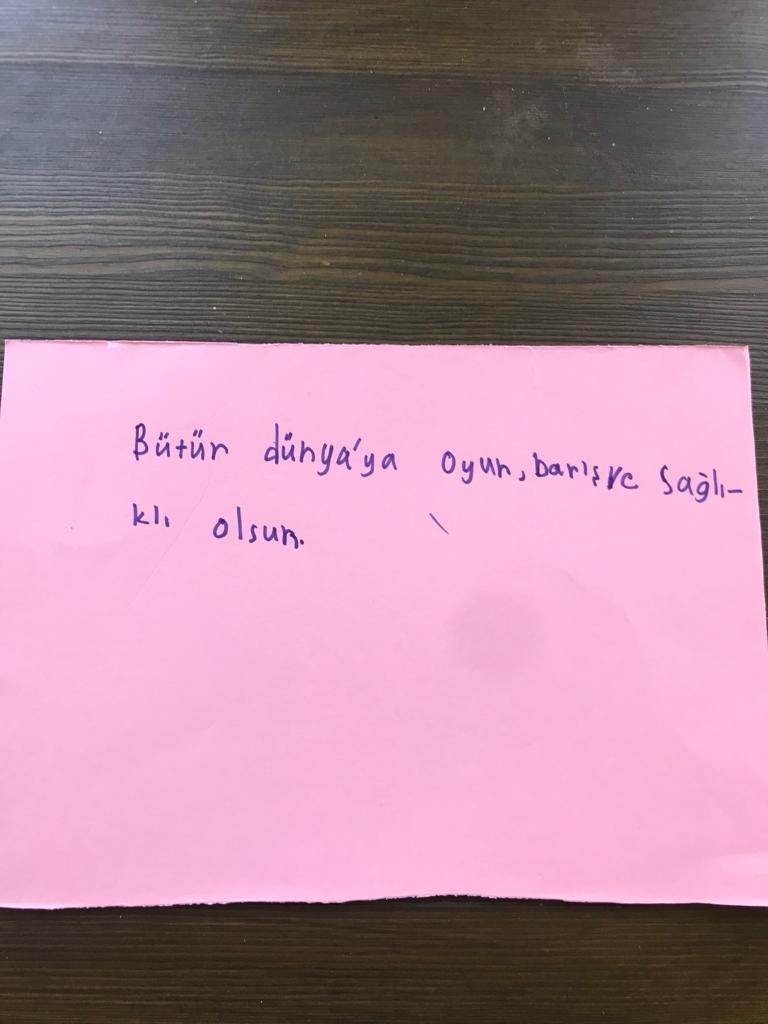 Bütün dünya'ya oyun, barışve sağlı-
klı olsun.